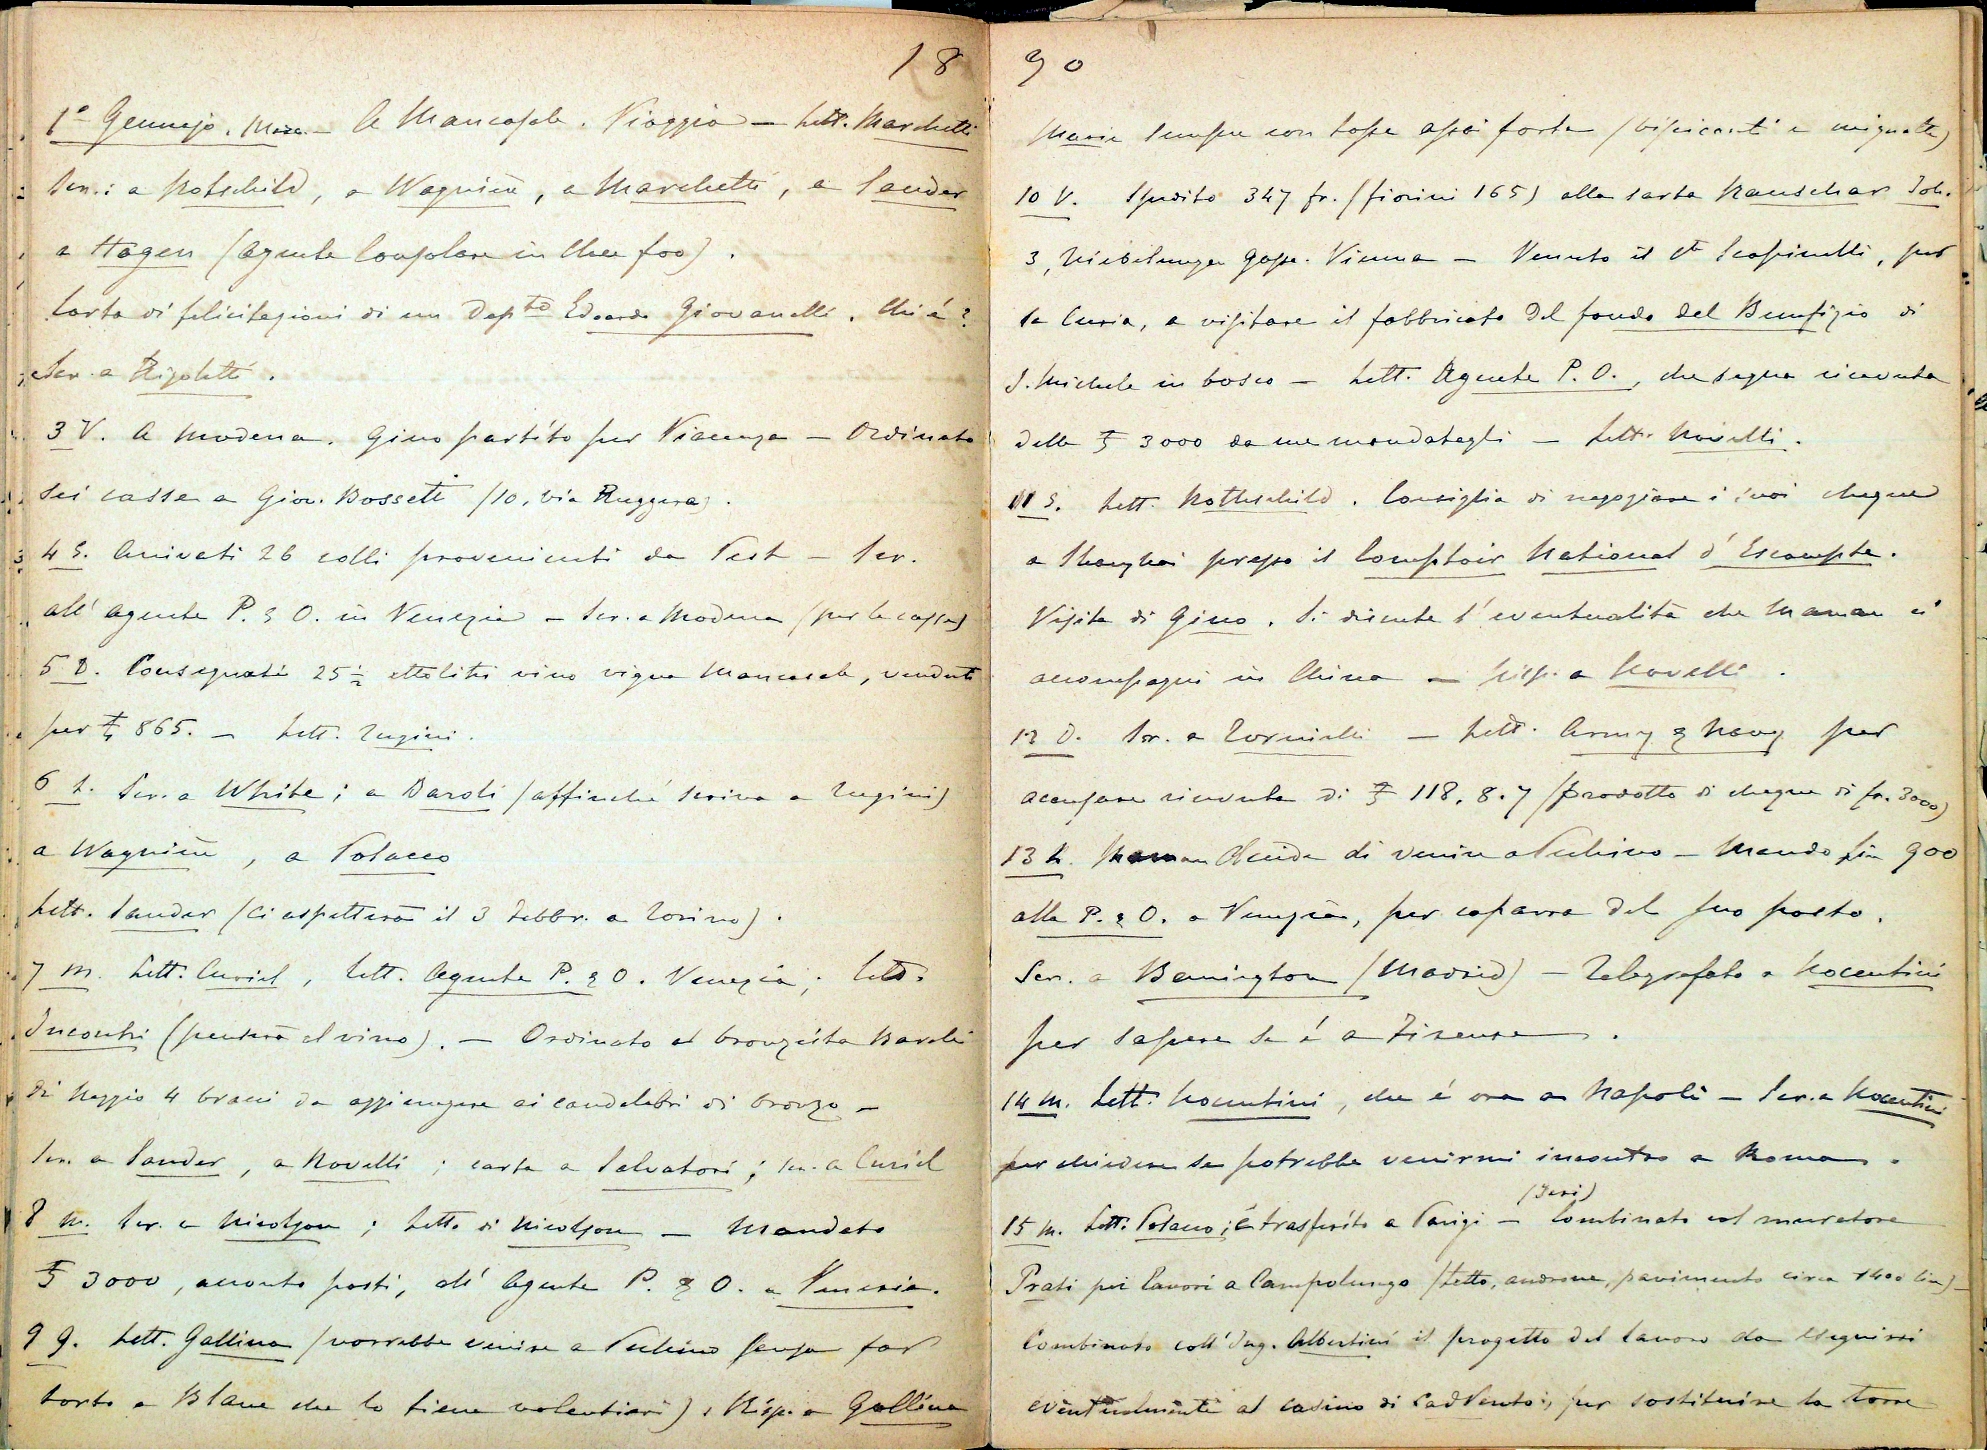 18
1° Gennajo. Merc. — A Mancasale. Viaggio — Lett. Marchetti
Scr.: a Rotschild, a Wagnière, a Marchetti, a Sander
a Hagen (Agente Consolare in Chee foo).
Carta di felicitazioni di un Dep.to Edoardo Giovanelli. Chi è?
Scr. a Rigoletti.
3 V. A Modena. Gino partito per Piacenza — Ordinato
sei casse a Giov. Bossetti (10, via Ruggera).
4 S. Arrivati 26 colli provenienti da Pest — Scr.
all' agente P. & O. in Venezia — Scr. a Modena (per le casse)
5 D. Consegnati 25 ½ ettolitri vino vigna Mancasale, venduti
per £ 865. — Lett. Zugini.
6 L. Scr. a White; a Baroli (affinché scriva a Zugini)
a Wagnière, a Polacco
Lett. Sander (ci aspetterà il 3 Febbr. a Torino).
7 M. Lett. Curiel, Lett. Agente P. & O. Venezia; Lett.
Incontri (penserà al vino). — Ordinato al bronzista Baroli
di Reggio 4 bracci da aggiungere ai candelabri di bronzo —
Scr. a Sander, a Novelli; carta a Salvatori; scr. a Curiel
8 M. Scr. a Nicolson; Lett. di Nicolson — Mandato
£ 3000, acconto posti, all' Agente P. & O. a Venezia.
9 G. Lett. Gallina (vorrebbe venire a Pechino senza far
torto a Blanc che lo tiene volentieri). Risp. a Gallina
90
Marie sempre con tosse assai forte (vescicanti e mignatte)
10 V. Spedito 347 fr. (fiorini 165) alla sarta Rauschar Joh.
3, Niebelungen Gasse. Vienna — Venuto il Cte Scapinelli, per
la Curia, a visitare il fabbricato del fondo del Benefizio di
S. Michele in bosco — Lett. Agente P. O., che segna ricevuta
delle £ 3000 da me mandategli — Lett. Novelli.
11 S. Lett. Rothschild. Consiglia di negoziare i suoi cheques
a Shanghai presso il Comptoir National d'Escompte.
Visita di Gino. Si discute l'eventualità che Maman ci
accompagni in China — Risp. a Novelli.
12 D. Scr. a Tornielli — Lett. Army & Navy per
accusare ricevuta di £ 118.8.7 (prodotto di cheque di fr. 3000)
13 L. Maman decide di venire a Pechino — Mando Lire 900
alla P. & O. a Venezia, per caparra del suo posto.
Scr. a Bonnington (Madrid) — Telegrafato a Nocentini
per sapere se è a Firenze.
14 M. Lett. Nocentini, che è ora a Napoli — Scr. a Nocentini
per chiedere se potrebbe venirmi incontro a Roma.
15 M. Lett. Polacco; è trasferito a Parigi — (Ieri) Combinato col muratore
Prati pei lavori a Campolungo (tetto, androne, pavimento circa 1400 lire) —
Combinato coll' Ing. Albertini il progetto del lavoro da eseguirsi
eventualmente al casino di Cadelvento, per sostituire la torre